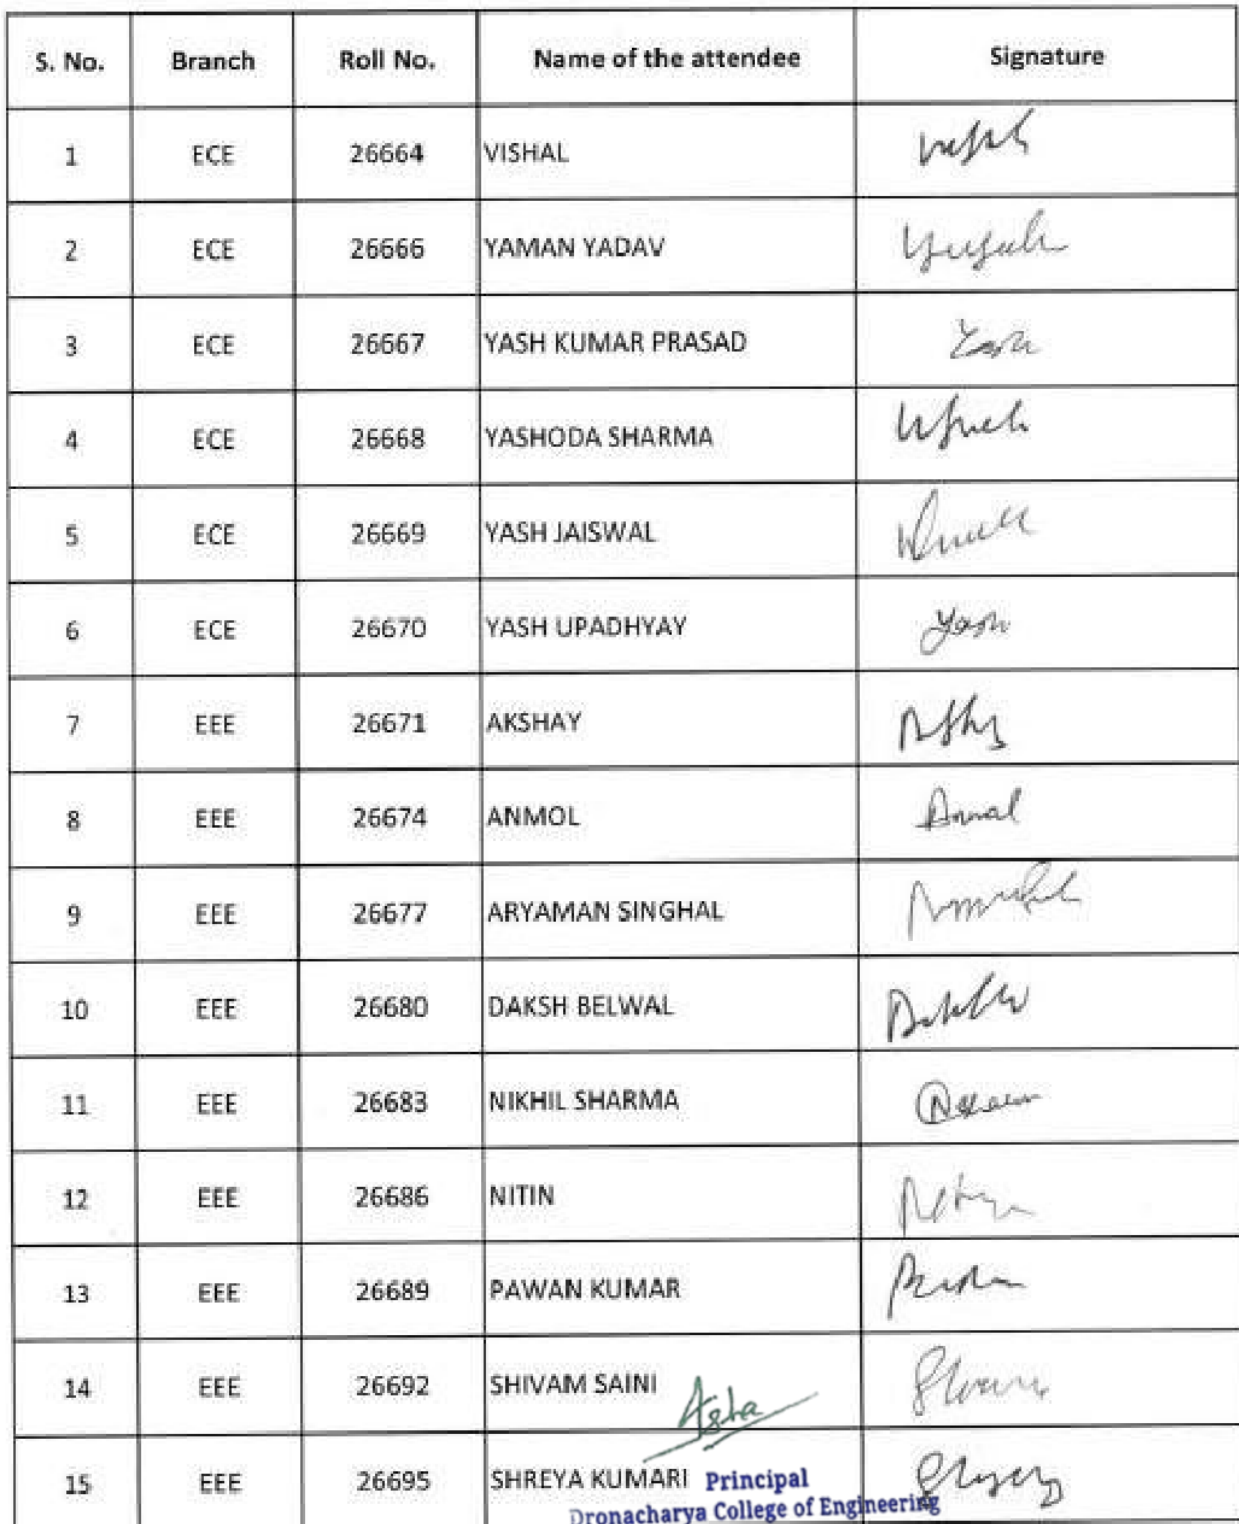 S. No. Branch Roll No. Name of the attendee Signature
1 ECE 26664 VISHAL
2 ECE 26666 YAMAN YADAV
3 ECE 26667 YASH KUMAR PRASAD Yash
4 ECE 26668 YASHODA SHARMA
5 ECE 26669 YASH JAISWAL
6 ECE 26670 YASH UPADHYAY Yash
7 EEE 26671 AKSHAY
8 EEE 26674 ANMOL Anmol
9 EEE 26677 ARYAMAN SINGHAL
10 EEE 26680 DAKSH BELWAL
11 EEE 26683 NIKHIL SHARMA
12 EEE 26686 NITIN
13 EEE 26689 PAWAN KUMAR
14 EEE 26692 SHIVAM SAINI
15 EEE 26695 SHREYA KUMARI
Principal
Dronacharya College of Engineering